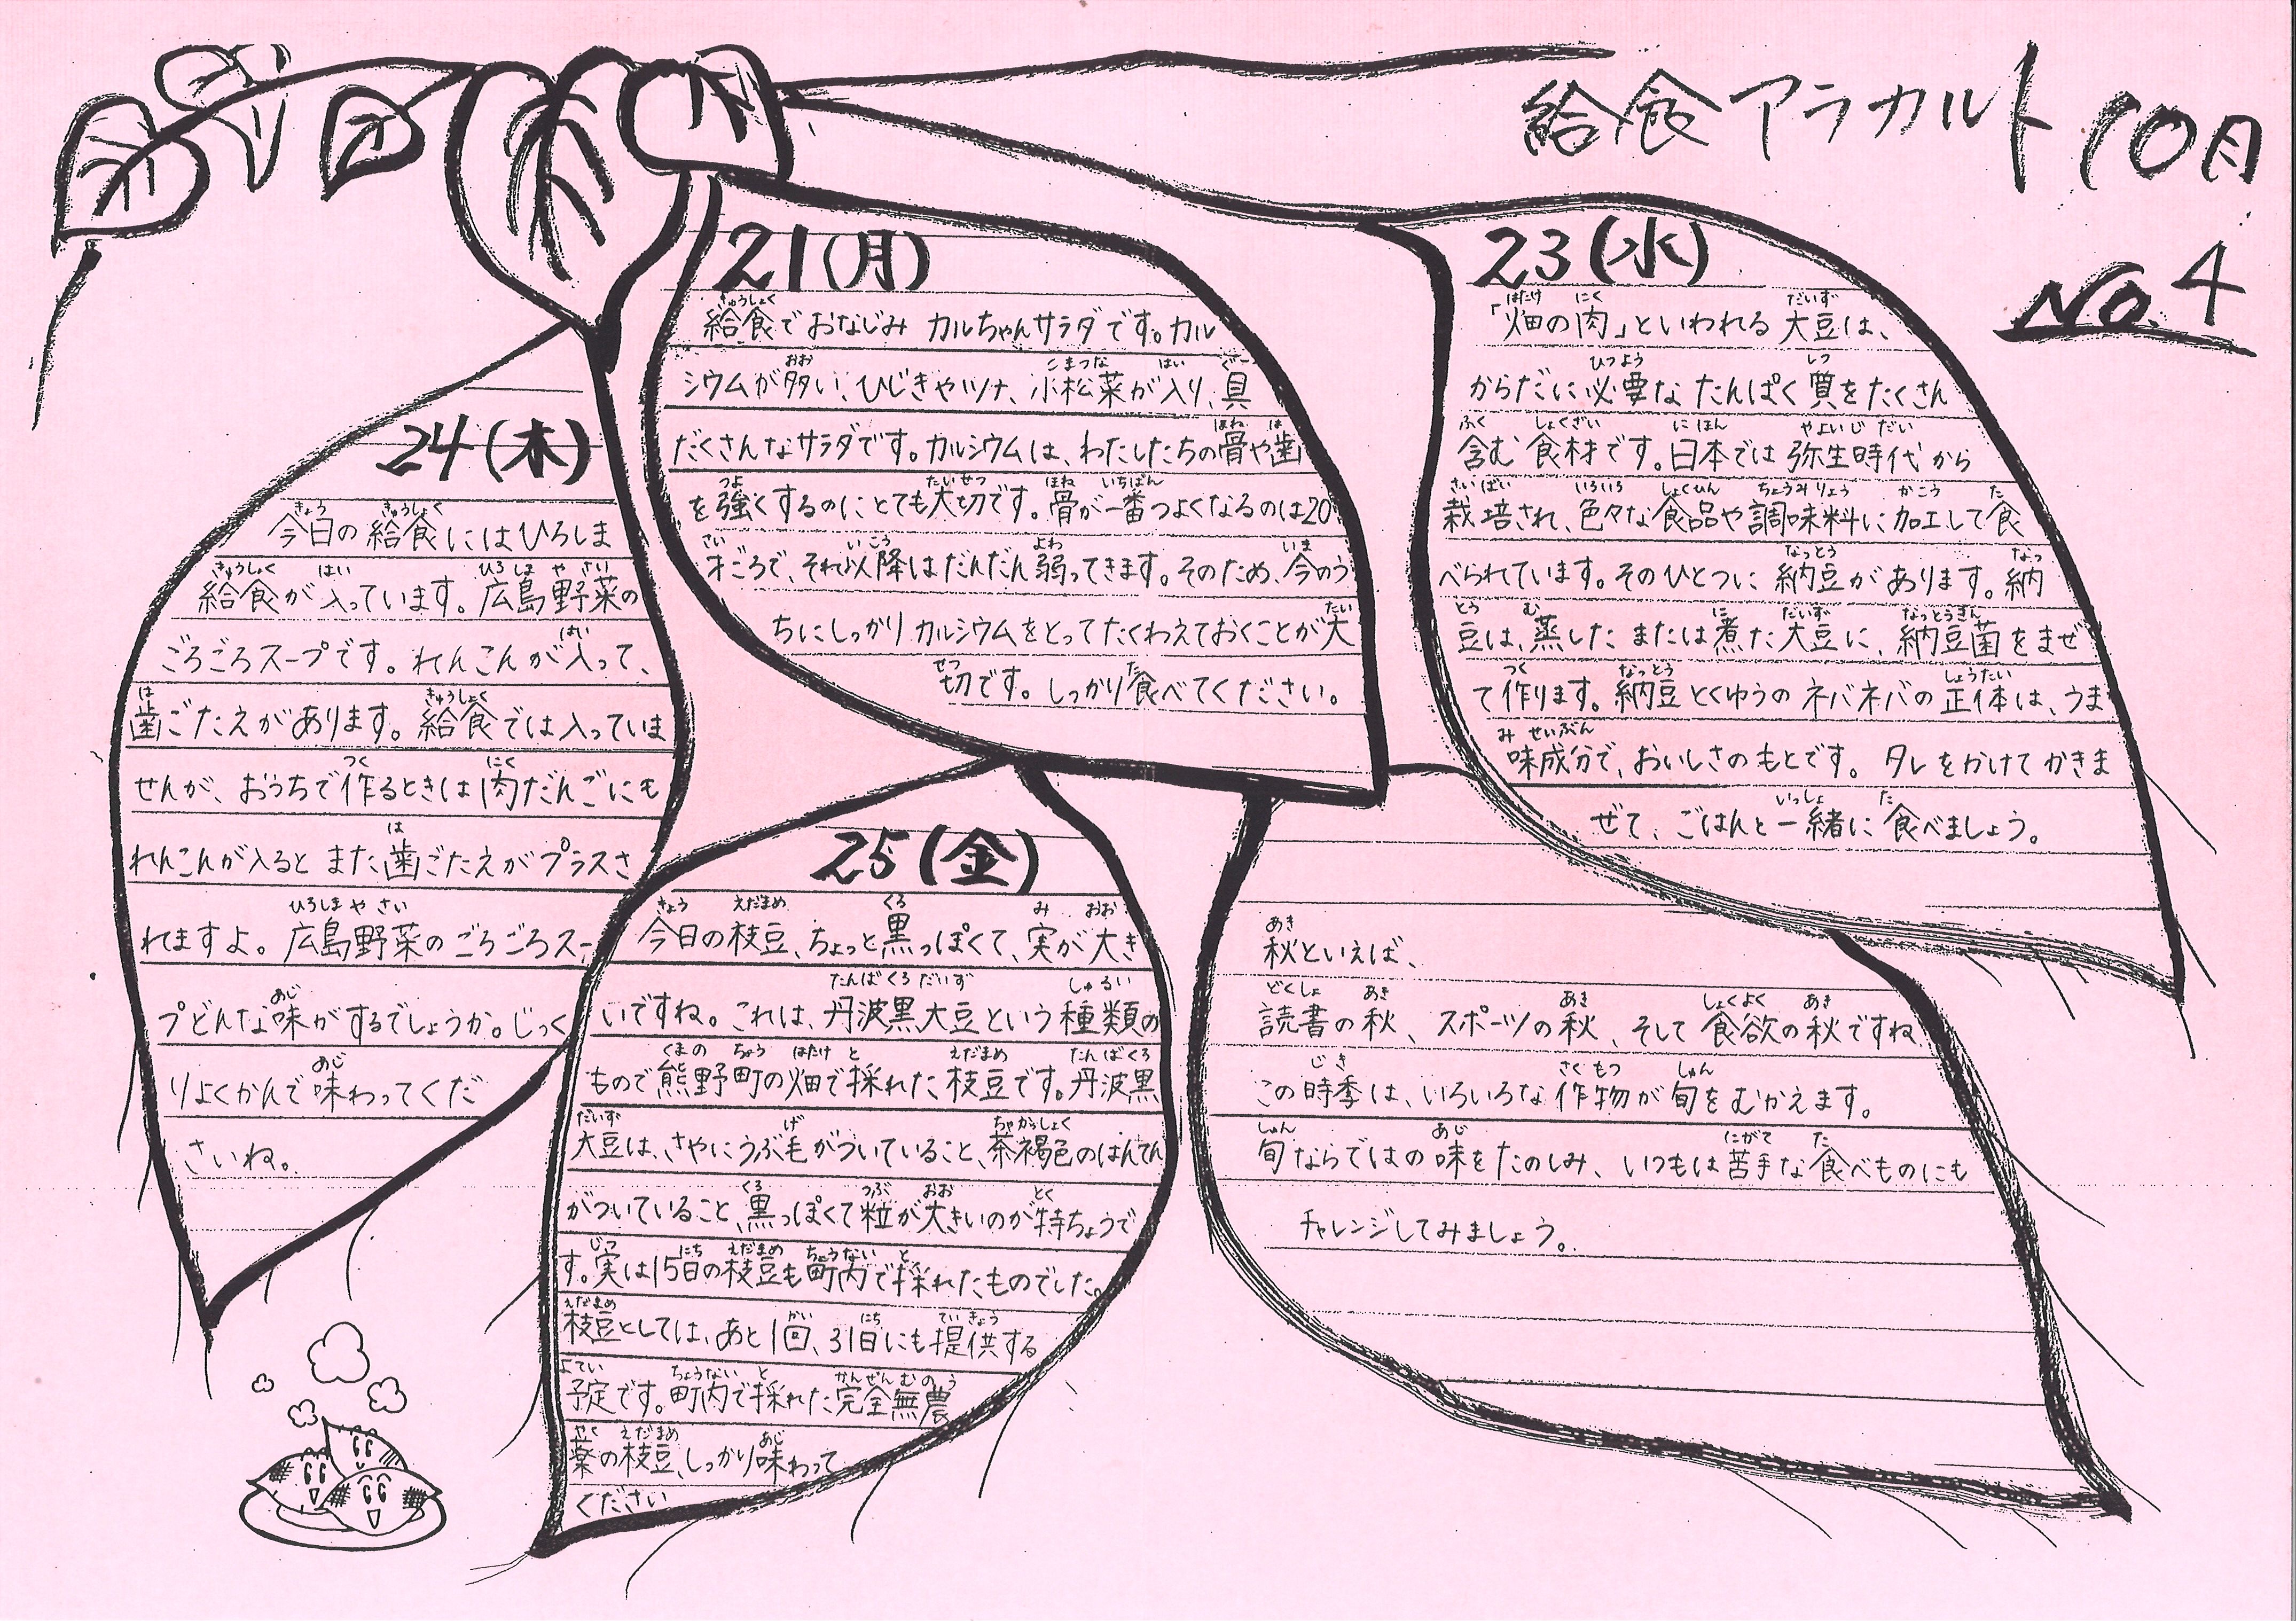 給食アラカルト 10月
No.4
21(月)
給食でおなじみ カルちゃんサラダです。カル
シウムが多い、ひじきやツナ、小松菜が入り、具
だくさんなサラダです。カルシウムは、わたしたちの骨や歯
を強くするのにとても大切です。骨が一番つよくなるのは20
才ごろで、それ以降はだんだん弱ってきます。そのため、今のう
ちにしっかりカルシウムをとってたくわえておくことが大
切です。しっかり食べてください。
23(水)
「畑の肉」といわれる 大豆は、
からだに必要な たんぱく質をたくさん
含む 食材です。日本では 弥生時代から
栽培され、色々な食品や調味料に加工して食
べられています。そのひとつに 納豆があります。納
豆は、蒸した または煮た大豆に、納豆菌をまぜ
て作ります。納豆とくゆうの ネバネバの正体は、うま
味成分で、おいしさのもとです。タレをかけてかきま
ぜて、ごはんと一緒に食べましょう。
24(木)
今日の給食にはひろしま
給食が入っています。広島野菜の
ごろごろスープです。れんこんが入って、
歯ごたえがあります。給食では入っていま
せんが、おうちで作るときは肉だんごにも
れんこんが入ると また歯ごたえがプラスさ
れますよ。広島野菜のごろごろスー
プどんな味がするでしょうか。じっく
りょくかんで味わってくだ
さいね。
25(金)
今日の枝豆、ちょっと黒っぽくて、実が大き
いですね。これは、丹波黒大豆という種類の
もので熊野町の畑で採れた枝豆です。丹波黒
大豆は、さやにうぶ毛がついていること、茶褐色のはんてん
がついていること、黒っぽくて粒が大きいのが特ちょうで
す。実は15日の枝豆も町内で採れたものでした。
枝豆としては、あと1回、31日にも提供する
予定です。町内で採れた完全無農
薬の枝豆、しっかり味わって
ください
秋といえば、
読書の秋、スポーツの秋、そして食欲の秋ですね。
この時季は、いろいろな作物が旬をむかえます。
旬ならではの味をたのしみ、いつもは苦手な食べものにも
チャレンジしてみましょう。